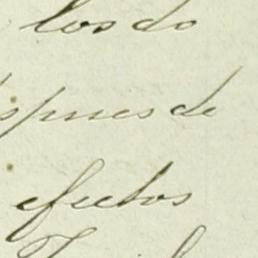 los do
spues de
efectos